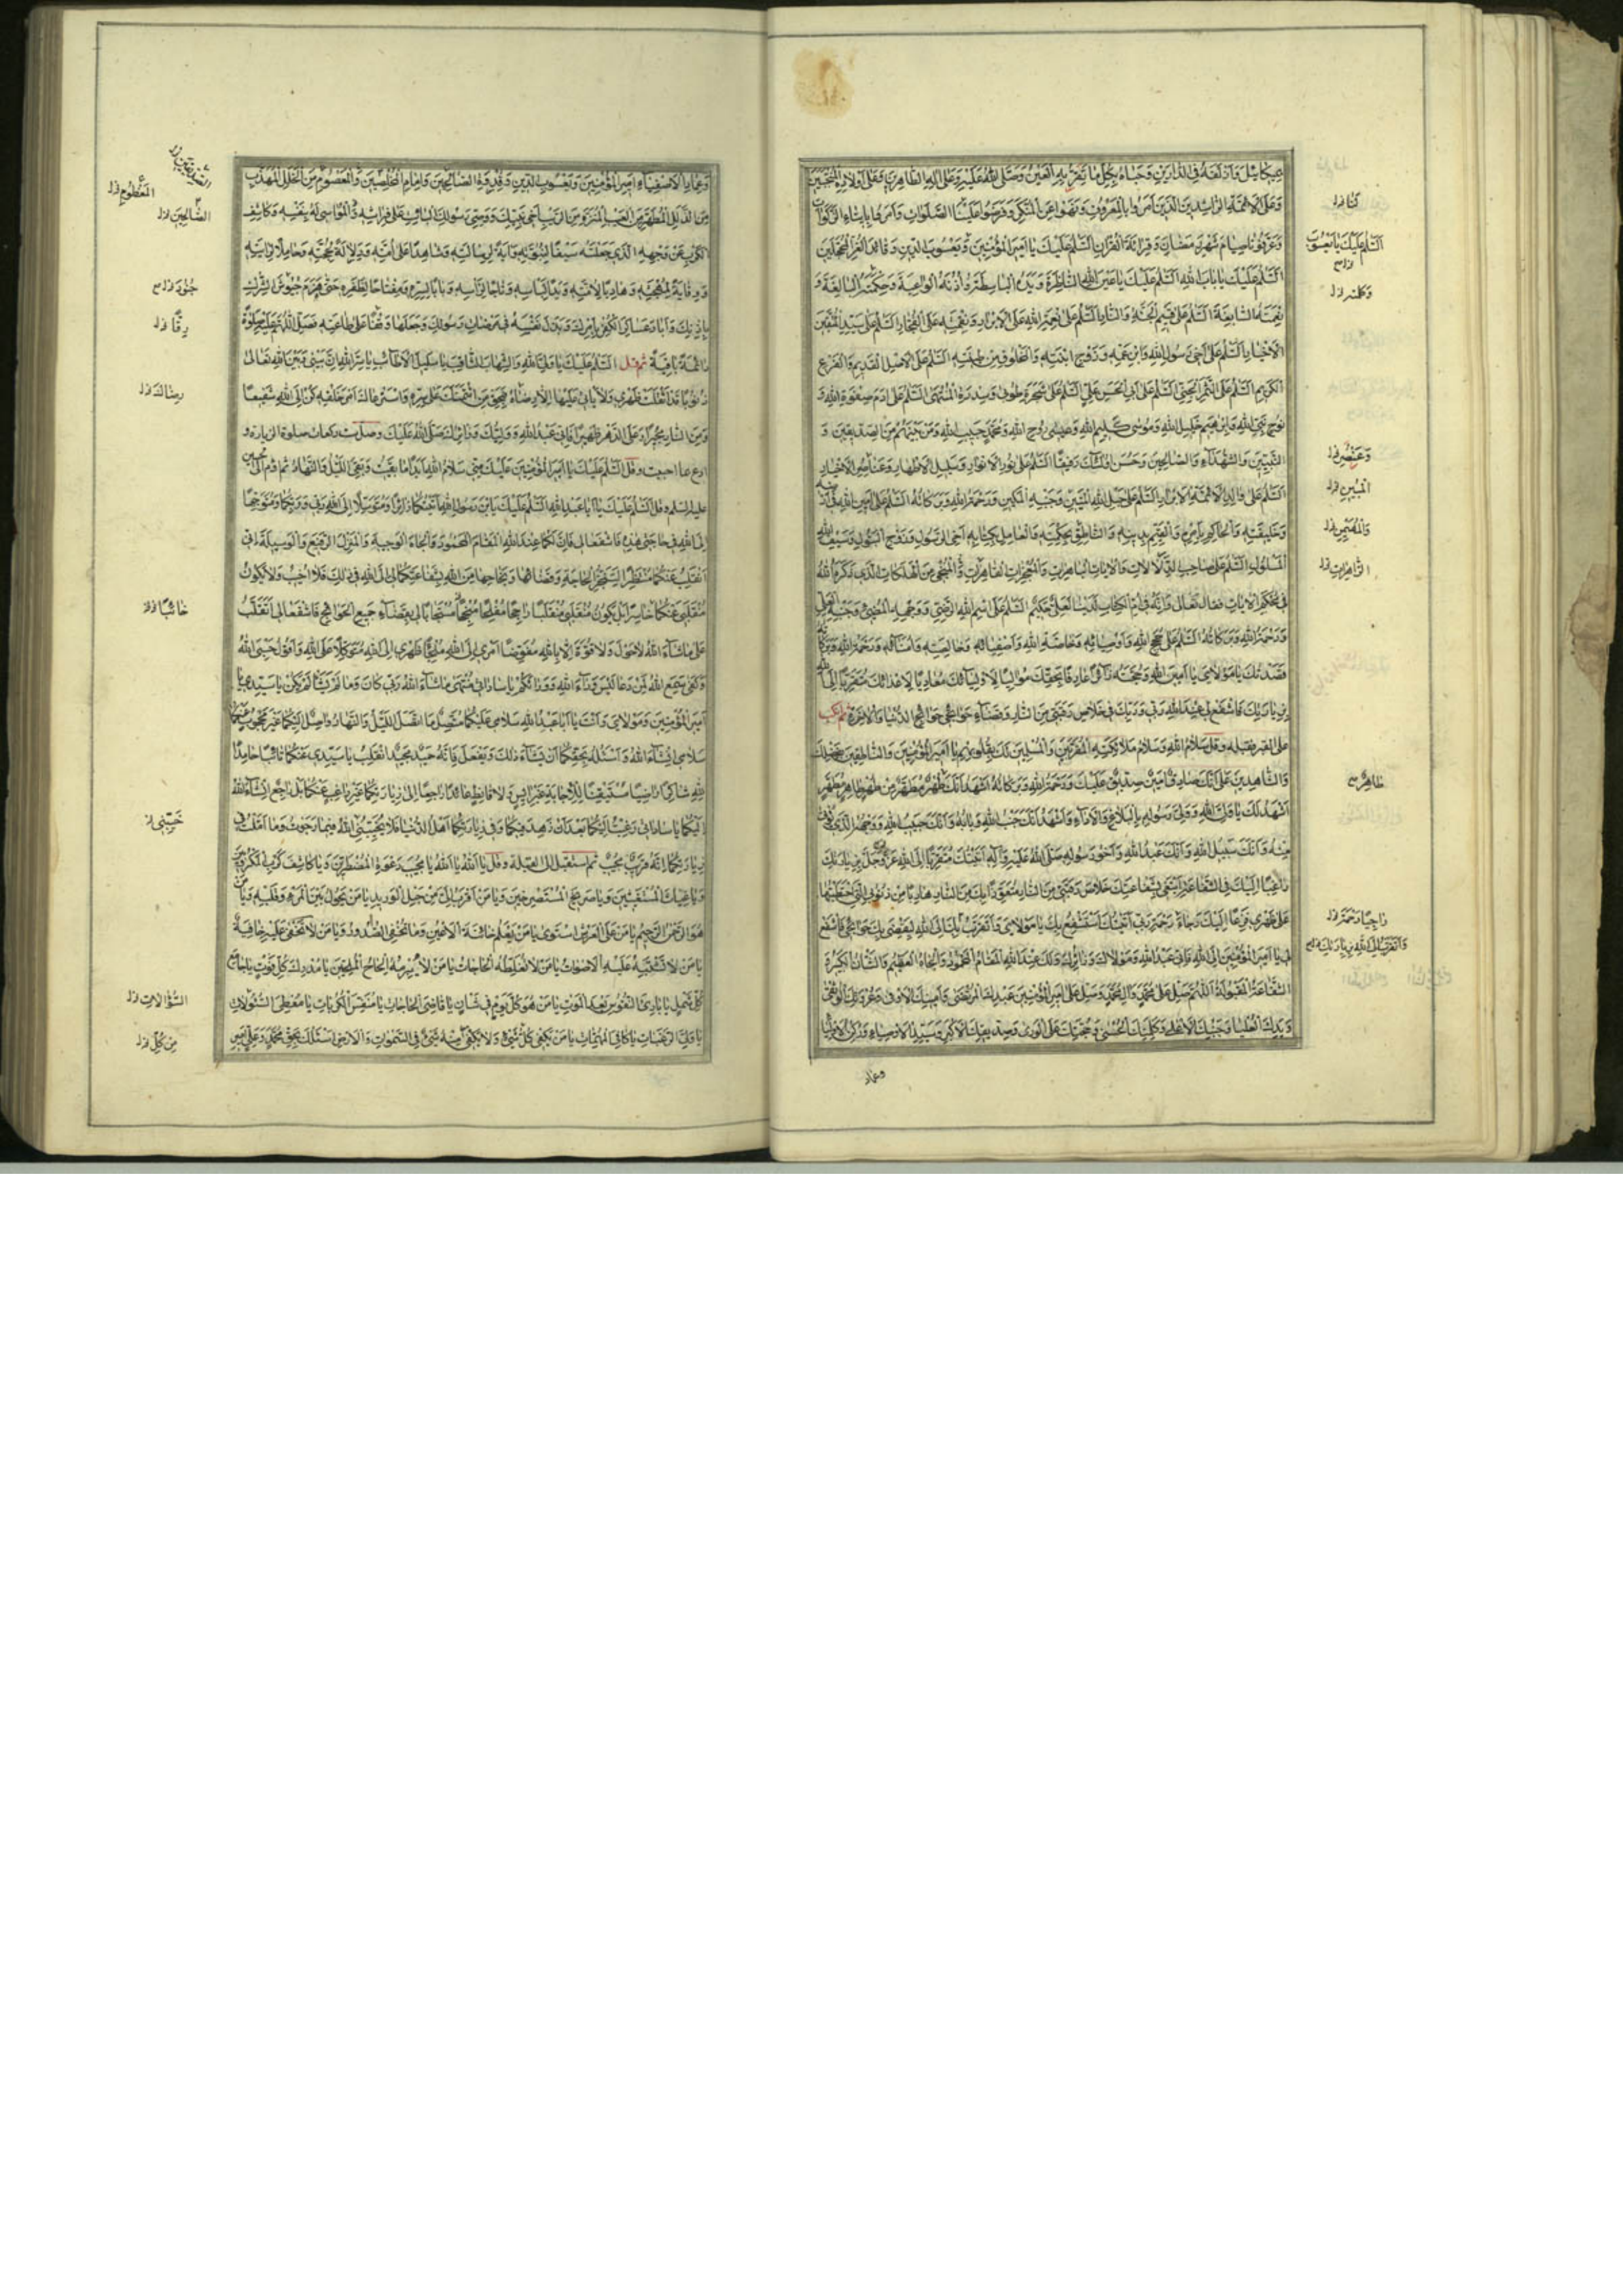 وَعَلَى الْأَئِمَّةِ الرَّاشِدِينَ الَّذِينَ أَمَرُوا بِالْمَعْرُوفِ وَنَهَوْا عَنِ الْمُنْكَرِ وَفَرَضُوا عَلَيْنَا الصَّلَوَاتِ وَأَمَرُوا بِإِيتَاءِ الزَّكَوَاتِ
وَعَرَّفُونَا صِيَامَ شَهْرِ رَمَضَانَ وَقِرَائَةَ الْقُرْآنِ السَّلَامُ عَلَيْكَ يَا أَمِيرَ الْمُؤْمِنِينَ وَيَعْسُوبَ الدِّينِ وَقَائِدَ الْغُرِّ الْمُحَجَّلِينَ
السَّلَامُ عَلَيْكَ يَا بَابَ اللَّهِ السَّلَامُ عَلَيْكَ يَا عَيْنَ اللَّهِ النَّاظِرَةَ وَيَدَهُ الْبَاسِطَةَ وَأُذُنَهُ الْوَاعِيَةَ وَحِكْمَتَهُ الْبَالِغَةَ وَ
نِعْمَتَهُ السَّابِغَةَ السَّلَامُ عَلَى قَسِيمِ الْجَنَّةِ وَالنَّارِ السَّلَامُ عَلَى نِعْمَةِ اللَّهِ عَلَى الْأَبْرَارِ وَنِقْمَتِهِ عَلَى الْفُجَّارِ السَّلَامُ عَلَى سَيِّدِ الْمُتَّقِينَ
الْأَخْيَارِ السَّلَامُ عَلَى أَخِي رَسُولِ اللَّهِ وَابْنِ عَمِّهِ وَزَوْجِ ابْنَتِهِ وَالْمَخْلُوقِ مِنْ طِينَتِهِ السَّلَامُ عَلَى الْأَصْلِ الْقَدِيمِ وَالْفَرْعِ
الْكَرِيمِ السَّلَامُ عَلَى الثَّمَرِ الْجَنِيِّ السَّلَامُ عَلَى أَبِي الْحَسَنِ عَلِيٍّ السَّلَامُ عَلَى شَجَرَةِ طُوبَى وَسِدْرَةِ الْمُنْتَهَى السَّلَامُ عَلَى آدَمَ صَفْوَةِ اللَّهِ وَ
نُوحٍ نَبِيِّ اللَّهِ وَإِبْرَاهِيمَ خَلِيلِ اللَّهِ وَمُوسَى كَلِيمِ اللَّهِ وَعِيسَى رُوحِ اللَّهِ وَمُحَمَّدٍ حَبِيبِ اللَّهِ وَمَنْ بَيْنَهُمْ مِنَ الصِّدِّيقِينَ وَ
النَّبِيِّينَ وَالشُّهَدَاءِ وَالصَّالِحِينَ وَحَسُنَ أُولَئِكَ رَفِيقًا السَّلَامُ عَلَى نُورِ الْأَنْوَارِ وَسَلِيلِ الْأَطْهَارِ وَعَنَاصِرِ الْأَخْيَارِ
السَّلَامُ عَلَى وَالِدِ الْأَئِمَّةِ الْأَبْرَارِ السَّلَامُ عَلَى حَبْلِ اللَّهِ الْمَتِينِ وَجَنْبِهِ الْمَكِينِ وَرَحْمَةُ اللَّهِ وَبَرَكَاتُهُ السَّلَامُ عَلَى أَمِينِ اللَّهِ فِي أَرْضِهِ
وَخَلِيفَتِهِ وَالْحَاكِمِ بِأَمْرِهِ وَالْقَيِّمِ بِدِينِهِ وَالنَّاطِقِ بِحِكْمَتِهِ وَالْعَامِلِ بِكِتَابِهِ أَخِي الرَّسُولِ وَزَوْجِ الْبَتُولِ وَسَيْفِ اللَّهِ
الْمَسْلُولِ السَّلَامُ عَلَى صَاحِبِ الدَّلَالَاتِ وَالْآيَاتِ الْبَاهِرَاتِ وَالْمُعْجِزَاتِ الْقَاهِرَاتِ وَالْمُنْجِي مِنَ الْهَلَكَاتِ الَّذِي ذَكَرَهُ اللَّهُ
فِي مُحْكَمِ الْآيَاتِ فَقَالَ تَعَالَى وَإِنَّهُ فِي أُمِّ الْكِتَابِ لَدَيْنَا لَعَلِيٌّ حَكِيمٌ السَّلَامُ عَلَى اسْمِ اللَّهِ الرَّضِيِّ وَوَجْهِهِ الْمُضِيءِ وَجَنْبِهِ الْعَلِيِّ
وَرَحْمَةُ اللَّهِ وَبَرَكَاتُهُ السَّلَامُ عَلَى حُجَجِ اللَّهِ وَأَوْصِيَائِهِ وَخَاصَّةِ اللَّهِ وَأَصْفِيَائِهِ وَخَالِصَتِهِ وَأُمَنَائِهِ وَرَحْمَةُ اللَّهِ وَبَرَكَاتُهُ
قَصَدْتُكَ يَا مَوْلَايَ يَا أَمِينَ اللَّهِ وَحُجَّتَهُ زَائِرًا عَارِفًا بِحَقِّكَ مُوَالِيًا لِأَوْلِيَائِكَ مُعَادِيًا لِأَعْدَائِكَ مُتَقَرِّبًا إِلَى اللَّهِ
بِزِيَارَتِكَ فَاشْفَعْ لِي عِنْدَ اللَّهِ رَبِّي وَرَبِّكَ فِي خَلَاصِ رَقَبَتِي مِنَ النَّارِ وَقَضَاءِ حَوَائِجِي حَوَائِجِ الدُّنْيَا وَالْآخِرَةِ ثم انكب
على القبر فقبله وقل سَلَامُ اللَّهِ وَسَلَامُ مَلَائِكَتِهِ الْمُقَرَّبِينَ وَالْمُسَلِّمِينَ لَكَ بِقُلُوبِهِمْ يَا أَمِيرَ الْمُؤْمِنِينَ وَالنَّاطِقِينَ بِفَضْلِكَ
وَالشَّاهِدِينَ عَلَى أَنَّكَ صَادِقٌ أَمِينٌ صِدِّيقٌ عَلَيْكَ وَرَحْمَةُ اللَّهِ وَبَرَكَاتُهُ أَشْهَدُ أَنَّكَ طُهْرٌ مُطَهَّرٌ مِنْ طُهْرٍ طَاهِرٍ مُطَهَّرٍ
أَشْهَدُ لَكَ يَا وَلِيَّ اللَّهِ وَوَلِيَّ رَسُولِهِ بِالْبَلَاغِ وَالْأَدَاءِ وَأَشْهَدُ أَنَّكَ جَنْبُ اللَّهِ وَبَابُهُ وَأَنَّكَ حَبِيبُ اللَّهِ وَوَجْهُهُ الَّذِي يُؤْتَى
مِنْهُ وَأَنَّكَ سَبِيلُ اللَّهِ وَأَنَّكَ عَبْدُ اللَّهِ وَأَخُو رَسُولِهِ صَلَّى اللَّهُ عَلَيْهِ وَآلِهِ أَتَيْتُكَ مُتَقَرِّبًا إِلَى اللَّهِ عَزَّ وَجَلَّ بِزِيَارَتِكَ
رَاغِبًا إِلَيْكَ فِي الشَّفَاعَةِ أَبْتَغِي بِشَفَاعَتِكَ خَلَاصَ رَقَبَتِي مِنَ النَّارِ مُتَعَوِّذًا بِكَ مِنَ النَّارِ هَارِبًا مِنْ ذُنُوبِيَ الَّتِي احْتَطَبْتُهَا
عَلَى ظَهْرِي فَزِعًا إِلَيْكَ رَجَاءَ رَحْمَةِ رَبِّي أَتَيْتُكَ أَسْتَشْفِعُ بِكَ يَا مَوْلَايَ وَأَتَقَرَّبُ بِكَ إِلَى اللَّهِ لِيَقْضِيَ بِكَ حَوَائِجِي فَاشْفَعْ
لِي يَا أَمِيرَ الْمُؤْمِنِينَ إِلَى اللَّهِ فَإِنِّي عَبْدُ اللَّهِ وَمَوْلَاكَ وَزَائِرُكَ وَلَكَ عِنْدَ اللَّهِ الْمَقَامُ الْمَحْمُودُ وَالْجَاهُ الْعَظِيمُ وَالشَّأْنُ الْكَبِيرُ وَ
الشَّفَاعَةُ الْمَقْبُولَةُ اللَّهُمَّ صَلِّ عَلَى مُحَمَّدٍ وَآلِ مُحَمَّدٍ وَصَلِّ عَلَى أَمِيرِ الْمُؤْمِنِينَ عَبْدِكَ الْمُرْتَضَى وَأَمِينِكَ الْأَوْفَى وَعُرْوَتِكَ الْوُثْقَى
وَيَدِكَ الْعُلْيَا وَجَنْبِكَ الْأَعْلَى وَكَلِمَتِكَ الْحُسْنَى وَحُجَّتِكَ عَلَى الْوَرَى وَصِدِّيقِكَ الْأَكْبَرِ وَسَيِّدِ الْأَوْصِيَاءِ وَرُكْنِ الْأَوْلِيَاءِ
وعماد
السَّلَامُ عَلَيْكَ يَا يَعْسُوبَ
وَعُنْصُرِ
ظَاهِرٌ
رَاجِيًا رَحْمَةَ
وَعِمَادِ الْأَصْفِيَاءِ أَمِيرِ الْمُؤْمِنِينَ وَيَعْسُوبِ الدِّينِ وَقُدْوَةِ الصَّالِحِينَ وَإِمَامِ الْمُخْلِصِينَ وَالْمَعْصُومِ مِنَ الْخَلَلِ الْمُهَذَّبِ
مِنَ الزَّلَلِ الْمُطَهَّرِ مِنَ الْعَيْبِ الْمُنَزَّهِ مِنَ الرَّيْبِ أَخِي نَبِيِّكَ وَوَصِيِّ رَسُولِكَ الْبَائِتِ عَلَى فِرَاشِهِ وَالْمُوَاسِي لَهُ بِنَفْسِهِ وَكَاشِفِ
الْكَرْبِ عَنْ وَجْهِهِ الَّذِي جَعَلْتَهُ سَيْفًا لِنُبُوَّتِهِ وَآيَةً لِرِسَالَتِهِ وَشَاهِدًا عَلَى أُمَّتِهِ وَدِلَالَةً لِحُجَّتِهِ وَحَامِلًا لِرَايَتِهِ
وَوِقَايَةً لِمُهْجَتِهِ وَهَادِيًا لِأُمَّتِهِ وَيَدًا لِبَأْسِهِ وَتَاجًا لِرَأْسِهِ وَبَابًا لِسِرِّهِ وَمِفْتَاحًا لِظَفَرِهِ حَتَّى هَزَمَ جُيُوشَ الشِّرْكِ
بِإِذْنِكَ وَأَبَادَ عَسَاكِرَ الْكُفْرِ بِأَمْرِكَ وَبَذَلَ نَفْسَهُ فِي مَرْضَاةِ رَسُولِكَ وَجَعَلَهَا وَقْفًا عَلَى طَاعَتِهِ فَصَلِّ اللَّهُمَّ عَلَيْهِ صَلَاةً
دَائِمَةً بَاقِيَةً ثم قل السَّلَامُ عَلَيْكَ يَا وَلِيَّ اللَّهِ وَالشِّهَابَ الثَّاقِبَ يَا سَلِيلَ الْأَطَائِبِ يَا سِرَّ اللَّهِ إِنَّ بَيْنِي وَبَيْنَ اللَّهِ تَعَالَى
ذُنُوبًا قَدْ أَثْقَلَتْ ظَهْرِي وَلَا يَأْتِي عَلَيْهَا إِلَّا رِضَاهُ فَبِحَقِّ مَنِ ائْتَمَنَكَ عَلَى سِرِّهِ وَاسْتَرْعَاكَ أَمْرَ خَلْقِهِ كُنْ لِي إِلَى اللَّهِ شَفِيعًا
وَمِنَ النَّارِ مُجِيرًا وَعَلَى الدَّهْرِ ظَهِيرًا فَإِنِّي عَبْدُ اللَّهِ وَوَلِيُّكَ وَزَائِرُكَ صَلَّى اللَّهُ عَلَيْكَ وصل ست ركعات صلوة الزيارة و
ادع بما احببت وقل السَّلَامُ عَلَيْكَ يَا أَمِيرَ الْمُؤْمِنِينَ عَلَيْكَ مِنِّي سَلَامُ اللَّهِ أَبَدًا مَا بَقِيتُ وَبَقِيَ اللَّيْلُ وَالنَّهَارُ ثم اوم الى الحسين
عليه السلم وقل السَّلَامُ عَلَيْكَ يَا أَبَا عَبْدِ اللَّهِ السَّلَامُ عَلَيْكَ يَا ابْنَ رَسُولِ اللَّهِ أَتَيْتُكُمَا زَائِرًا وَمُتَوَسِّلًا إِلَى اللَّهِ رَبِّي وَرَبِّكُمَا وَمُتَوَجِّهًا
إِلَى اللَّهِ فِي حَاجَتِي هَذِهِ فَاشْفَعَا لِي فَإِنَّ لَكُمَا عِنْدَ اللَّهِ الْمَقَامَ الْمَحْمُودَ وَالْجَاهَ الْوَجِيهَ وَالْمَنْزِلَ الرَّفِيعَ وَالْوَسِيلَةَ إِنِّي
أَنْقَلِبُ عَنْكُمَا مُنْتَظِرًا لِتَنَجُّزِ الْحَاجَةِ وَقَضَائِهَا وَنَجَاحِهَا مِنَ اللَّهِ بِشَفَاعَتِكُمَا لِي إِلَى اللَّهِ فِي ذَلِكَ فَلَا أَخِيبُ وَلَا يَكُونُ
مُنْقَلَبِي عَنْكُمَا خَاسِرًا بَلْ يَكُونُ مُنْقَلَبِي مُنْقَلَبًا رَاجِحًا مُفْلِحًا مُنْجِحًا مُسْتَجَابًا لِي بِقَضَاءِ جَمِيعِ الْحَوَائِجِ فَاشْفَعَا لِي أَنْقَلِبُ
عَلَى مَا شَاءَ اللَّهُ لَا حَوْلَ وَلَا قُوَّةَ إِلَّا بِاللَّهِ مُفَوِّضًا أَمْرِي إِلَى اللَّهِ مُلْجِئًا ظَهْرِي إِلَى اللَّهِ مُتَوَكِّلًا عَلَى اللَّهِ وَأَقُولُ حَسْبِيَ اللَّهُ
وَكَفَى سَمِعَ اللَّهُ لِمَنْ دَعَا لَيْسَ وَرَاءَ اللَّهِ وَوَرَاءَكُمْ يَا سَادَاتِي مُنْتَهَى مَا شَاءَ اللَّهُ رَبِّي كَانَ وَمَا لَمْ يَشَأْ لَمْ يَكُنْ يَا سَيِّدِي يَا
أَمِيرَ الْمُؤْمِنِينَ وَمَوْلَايَ وَأَنْتَ يَا أَبَا عَبْدِ اللَّهِ سَلَامِي عَلَيْكُمَا مُتَّصِلٌ مَا اتَّصَلَ اللَّيْلُ وَالنَّهَارُ وَاصِلٌ إِلَيْكُمَا غَيْرُ مَحْجُوبٍ عَنْكُمَا
سَلَامِي إِنْ شَاءَ اللَّهُ وَأَسْئَلُهُ بِحَقِّكُمَا أَنْ يَشَاءَ ذَلِكَ وَيَفْعَلَ فَإِنَّهُ حَمِيدٌ مَجِيدٌ أَنْقَلِبُ يَا سَيِّدِي عَنْكُمَا تَائِبًا حَامِدًا
لِلَّهِ شَاكِرًا رَاضِيًا مُسْتَيْقِنًا لِلْإِجَابَةِ غَيْرَ آيِسٍ وَلَا قَانِطٍ عَائِدًا رَاجِعًا إِلَى زِيَارَتِكُمَا غَيْرَ رَاغِبٍ عَنْكُمَا بَلْ رَاجِعٌ إِنْ شَاءَ اللَّهُ
إِلَيْكُمَا يَا سَادَاتِي رَغِبْتُ إِلَيْكُمَا بَعْدَ أَنْ زَهِدَ فِيكُمَا وَفِي زِيَارَتِكُمَا أَهْلُ الدُّنْيَا فَلَا يُخَيِّبُنِي اللَّهُ فِيمَا رَجَوْتُ وَمَا أَمَّلْتُ فِي
زِيَارَتِكُمَا إِنَّهُ قَرِيبٌ مُجِيبٌ ثم استقبل الى القبلة وقل يَا اللَّهُ يَا اللَّهُ يَا مُجِيبَ دَعْوَةِ الْمُضْطَرِّينَ وَيَا كَاشِفَ كَرْبِ الْمَكْرُوبِينَ
وَيَا غِيَاثَ الْمُسْتَغِيثِينَ وَيَا صَرِيخَ الْمُسْتَصْرِخِينَ وَيَا مَنْ أَقْرَبُ إِلَيَّ مِنْ حَبْلِ الْوَرِيدِ يَا مَنْ يَحُولُ بَيْنَ الْمَرْءِ وَقَلْبِهِ وَيَا مَنْ
هُوَ الرَّحْمَنُ الرَّحِيمُ يَا مَنْ عَلَى الْعَرْشِ اسْتَوَى يَا مَنْ يَعْلَمُ خَائِنَةَ الْأَعْيُنِ وَمَا تُخْفِي الصُّدُورُ وَيَا مَنْ لَا تَخْفَى عَلَيْهِ خَافِيَةٌ
يَا مَنْ لَا تَشْتَبِهُ عَلَيْهِ الْأَصْوَاتُ يَا مَنْ لَا تُغَلِّطُهُ الْحَاجَاتُ يَا مَنْ لَا يُبْرِمُهُ إِلْحَاحُ الْمُلِحِّينَ يَا مُدْرِكَ كُلِّ فَوْتٍ يَا جَامِعَ
كُلِّ شَمْلٍ يَا بَارِئَ النُّفُوسِ بَعْدَ الْمَوْتِ يَا مَنْ هُوَ كُلَّ يَوْمٍ فِي شَأْنٍ يَا قَاضِيَ الْحَاجَاتِ يَا مُنَفِّسَ الْكُرُبَاتِ يَا مُعْطِيَ السُّؤُلَاتِ
يَا وَلِيَّ الرَّغَبَاتِ يَا كَافِيَ الْمُهِمَّاتِ يَا مَنْ يَكْفِي كُلَّ شَيْءٍ وَلَا يَكْفِي مِنْهُ شَيْءٌ فِي السَّمَوَاتِ وَالْأَرْضِ أَسْئَلُكَ بِحَقِّ مُحَمَّدٍ وَعَلِيٍّ أَمِيرِ
الْمَفْطُومِ
خَائِبًا
السُّؤَالَاتِ
مِنْ كُلِّ